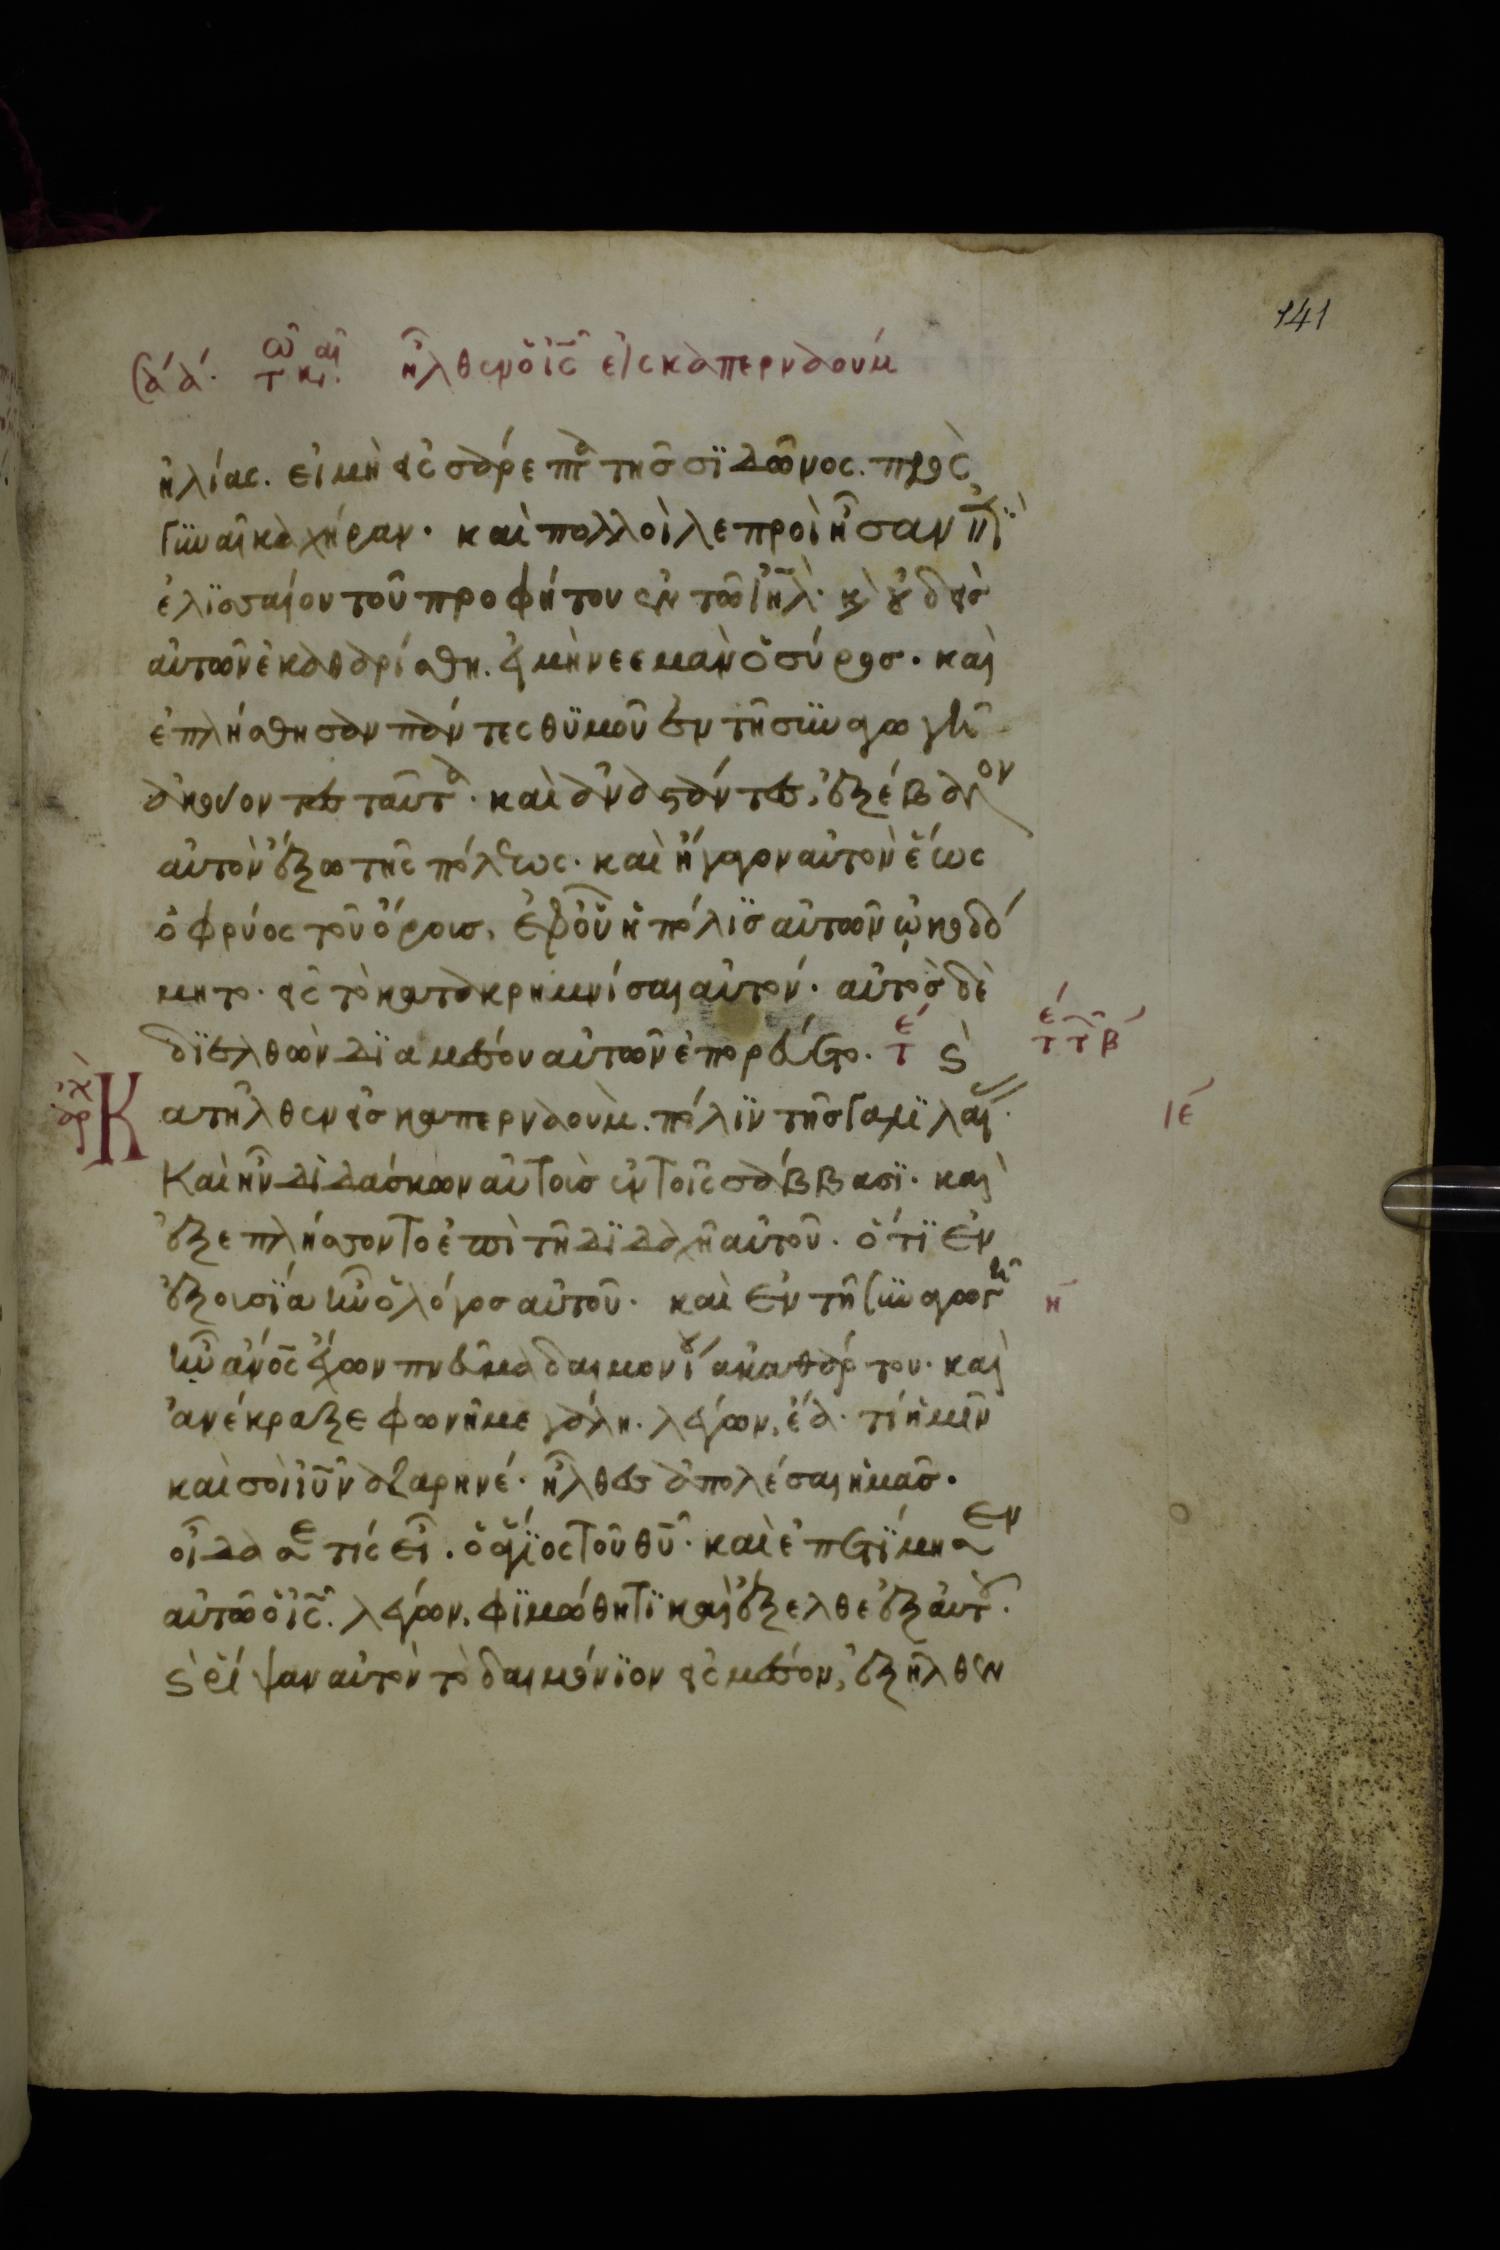 141
ἦλθεν ὁ ἰς εἰς καπερναούμ
ἠλίας. εἰ μὴ εἰς σάρεπτα τῆς σϊδῶνος. πρὸς
γυναῖκα χήραν. καὶ πολλοὶ λεπροὶ ἦσαν ἐπὶ
ἐλϊσσαίου τοῦ προφήτου ἐν τῶ ἰηλ. κ οὐδεὶς
αὐτῶν ἐκαθαρίσθη. εἰ μὴ νεεμὰν ὁ σύρος. καὶ
ἐπλήσθησαν πάντες θϋμοῦ ἐν τῆ συναγωγῆ
ἀκούοντες ταῦτα. καὶ ἀναστάντες, ἐξέβαλον
αὐτὸν ἔξω τῆς πόλεως. καὶ ἤγαγον αὐτὸν ἕως
ὀφρύος τοῦ ὄρους, ἐφ' οὗ ἡ πόλϊς αὐτῶν ὠκοδό
μητο. εἰς τὸ κατακρημνίσαι αὐτόν. αὐτὸς δὲ
δϊελθὼν δϊα μέσου αὐτῶν ἐπορεύετο. τε ς
ε τ τ β
αρχ Κατῆλθεν εἰς καπερναοὺμ. πόλϊν τῆς γαλϊλαίας.
ιε
Καὶ ἦν διδάσκων αὐτοὺς ἐν τοῖς σάββασϊ. καὶ
ἐξεπλήσσοντο ἐπὶ τῆ δϊδαχῆ αὐτοῦ. ὅτϊ ἐν
ἐξουσϊα ἦν ὁ λόγος αὐτοῦ. καὶ ἐν τῆ συναγωγῆ
η
ἦν ἀνος ἔχων πνεῦμα δαιμονίου ἀκαθάρτου. καὶ
ἀνέκραξε φωνῆ μεγάλη. λέγων, ἔα. τί ἡμῖν
καὶ σοὶ ἰυ ναζαρηνέ. ἦλθες ἀπολέσαι ἡμᾶς.
οἶδά σε τίς εἶ. ὁ ἅγϊος τοῦ θυ. καὶ ἐπετϊμησεν
αὐτῶ ὁ ις. λέγων. φϊμώθητϊ καὶ ἔξελθε ἐξ αὐτοῦ.
ς ῥίψαν αὐτὸν τὸ δαιμόνϊον εἰς μέσον, ἐξῆλθεν